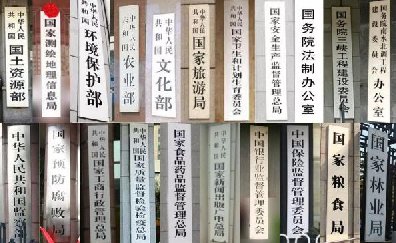 中华人民共和国
国土资源部
国家测绘地理信息局
中华人民共和国
环境保护部
中华人民共和国
农业部
中华人民共和国
文化部
中华人民共和国
国家旅游局
中华人民共和国
国家卫生和计划生育委员会
国家安全生产监督管理总局
国务院法制办公室
国务院三峡工程建设委员会
国务院南水北调工程
建设委员会
办公室
中华人民共和国监察部
国家预防腐败局
中华人民共和国
国家工商行政管理总局
中华人民共和国
国家质量监督检验检疫总局
国家食品药品监督管理总局
国家新闻出版广电总局
中国银行业监督管理委员会
中国保险监督管理委员会
国家粮食局
国家林业局